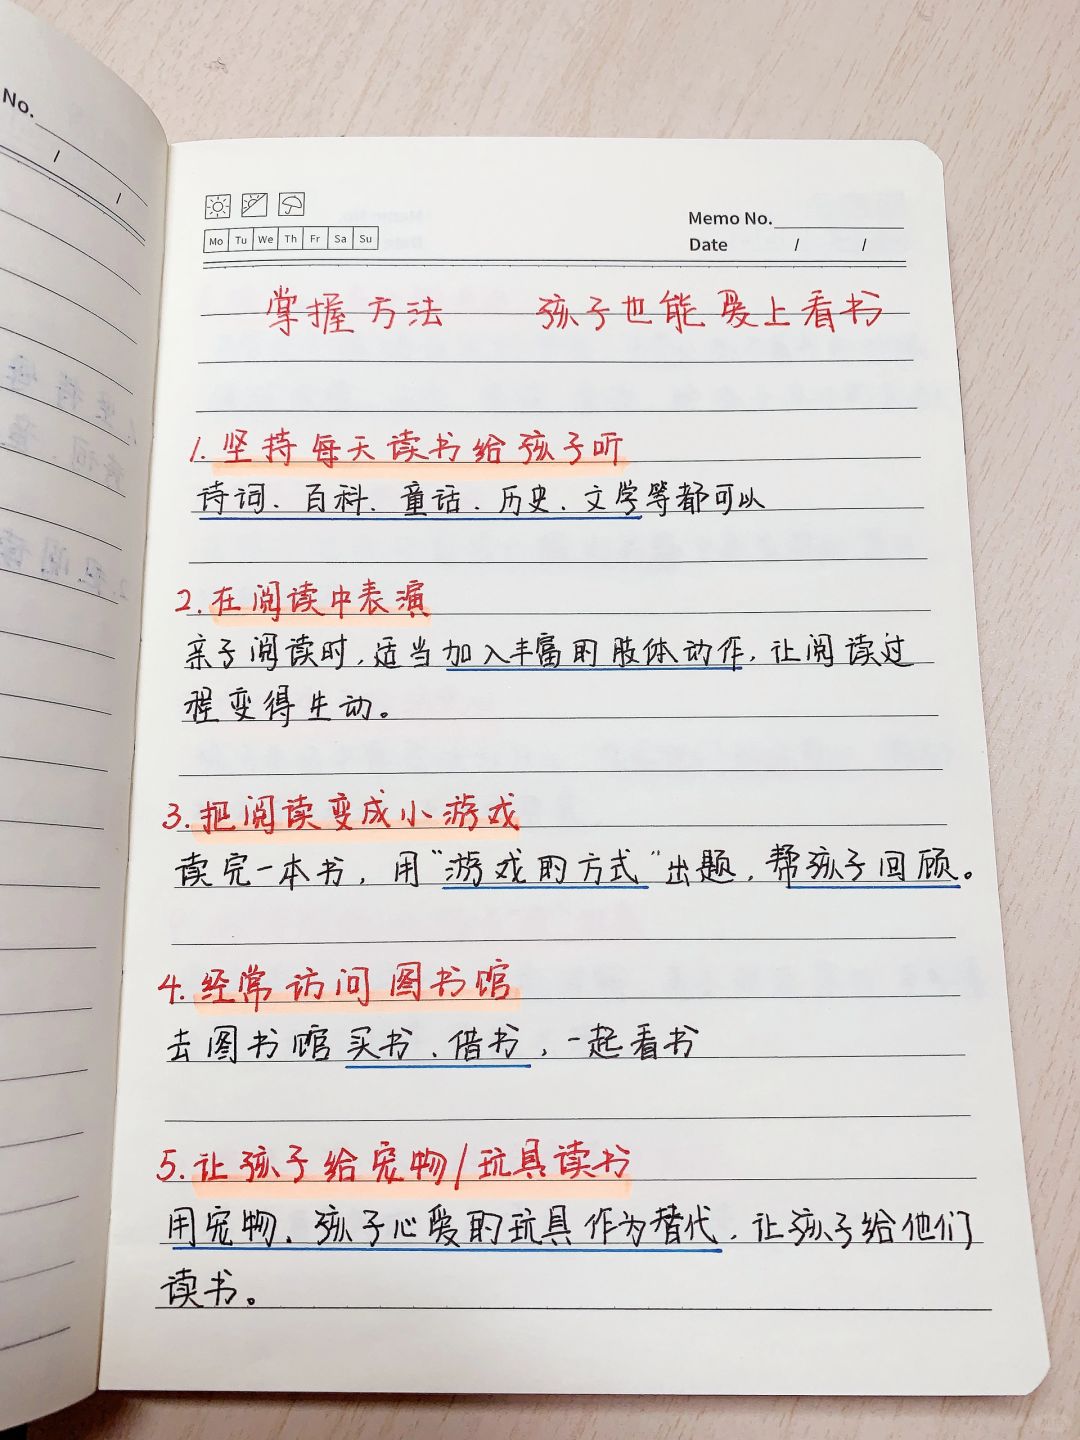 No.
/ /
Memo No.
Mo Tu We Th Fr Sa Su
Date / /
掌握方法 孩子也能爱上看书
1.坚持每天读书给孩子听
诗词、百科、童话、历史、文学等都可以
2.在阅读中表演
亲子阅读时,适当加入丰富的肢体动作,让阅读过
程变得生动。
3.把阅读变成小游戏
读完一本书,用"游戏的方式"出题,帮孩子回顾。
4.经常访问图书馆
去图书馆买书、借书,一起看书
5.让孩子给宠物/玩具读书
用宠物、孩子心爱的玩具作为替代,让孩子给他们
读书。